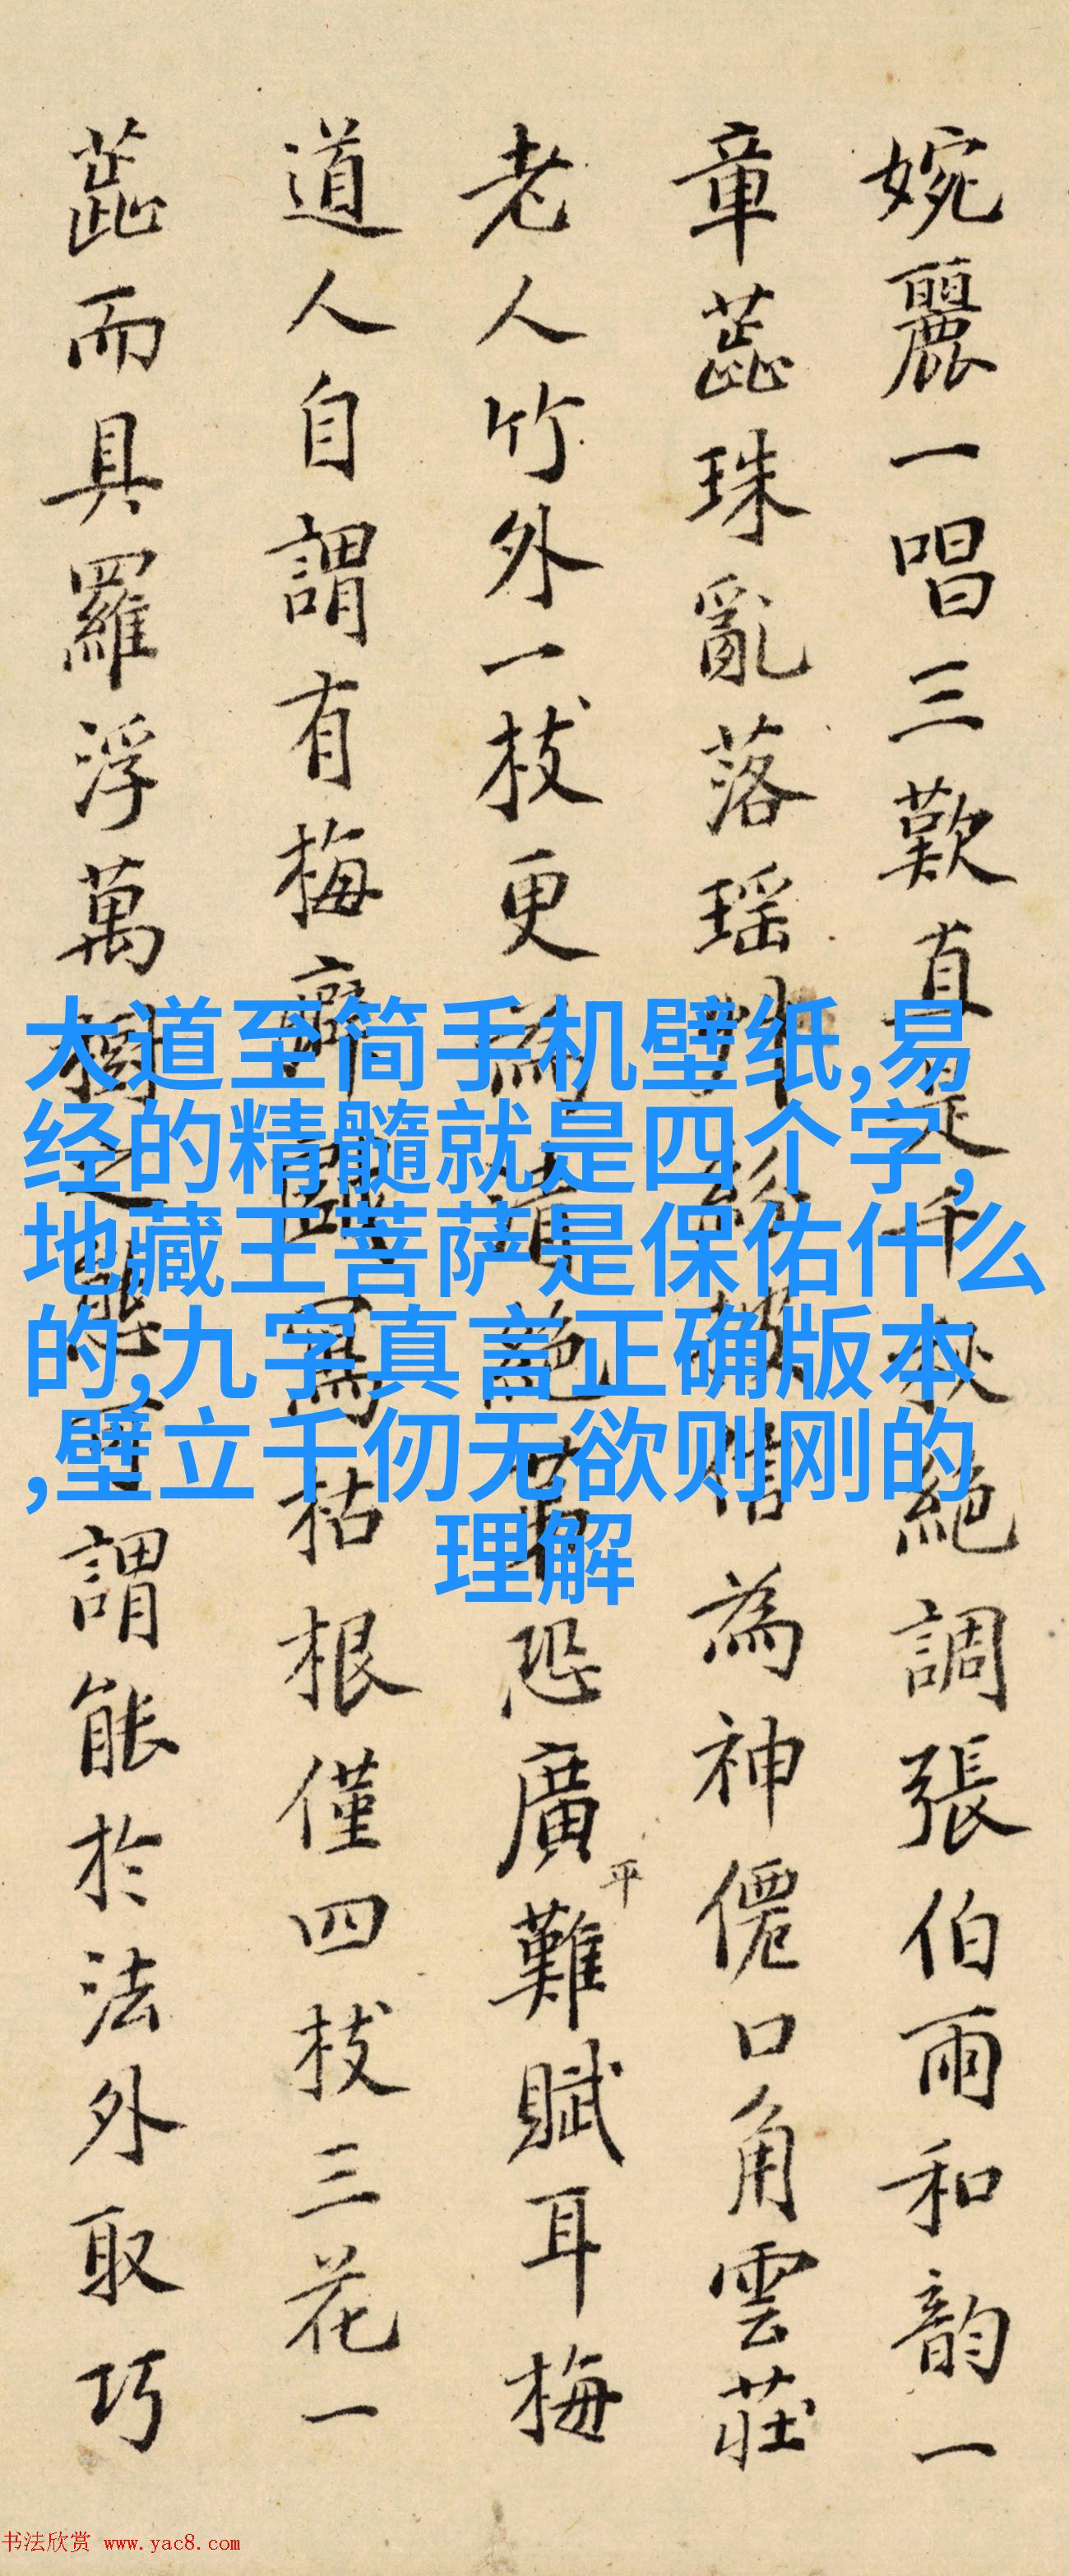 婉麗一唱三歎直是千秋絕調張伯雨和韵一
章蕊珠亂落瑶為神僊口角雲莊
老人竹外一枝更為清絕恐廣平難賦耳梅
道人自謂有梅癖寫枯根僅四枝三花一
蕊而具羅浮萬樹之態謂能於法外取巧
大道至简手机壁纸,易
经的精髓就是四个字,
地藏王菩萨是保佑什么
的,九字真言正确版本
,壁立千仞无欲则刚的
理解
书法欣赏 www.yac8.com